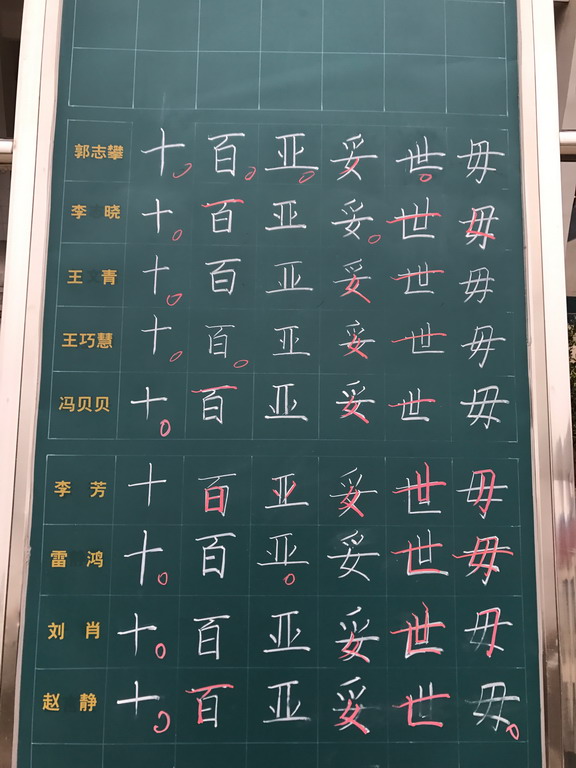 郭志攀 十 百 亚 妥 世 毋
李 晓 十 百 亚 妥 世 毋
王 青 十 百 亚 妥 世 毋
王巧慧 十 百 亚 妥 世 毋
冯贝贝 十 百 亚 妥 世 毋
李 芳 十 百 亚 妥 世 毋
雷 鸿 十 百 亚 妥 世 毋
刘 肖 十 百 亚 妥 世 毋
赵 静 十 百 亚 妥 世 毋